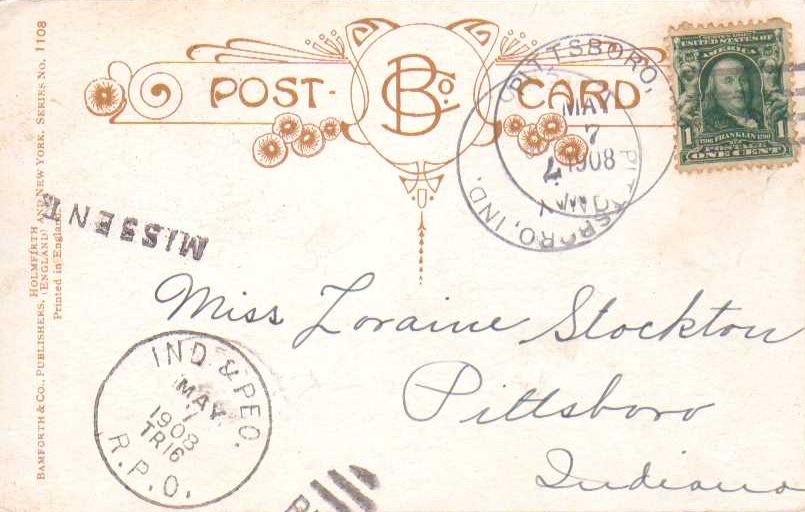 BAMFORTH & CO., PUBLISHERS, HOLMFIRTH (ENGLAND) AND NEW YORK. SERIES NO. 1108
Printed in England.
POST CARD
B Co.
PITTSBORO,
MAY
7
1908
PITTSBORO, IND.
MAY
SERIES 1902
UNITED STATES OF
AMERICA
1 FRANKLIN 1
POSTAGE
ONE CENT
MISSENT
Miss Loraine Stockton
Pittsboro
Indiana
IND. & PEO.
MAY
7
1908
TR16
R.P.O.